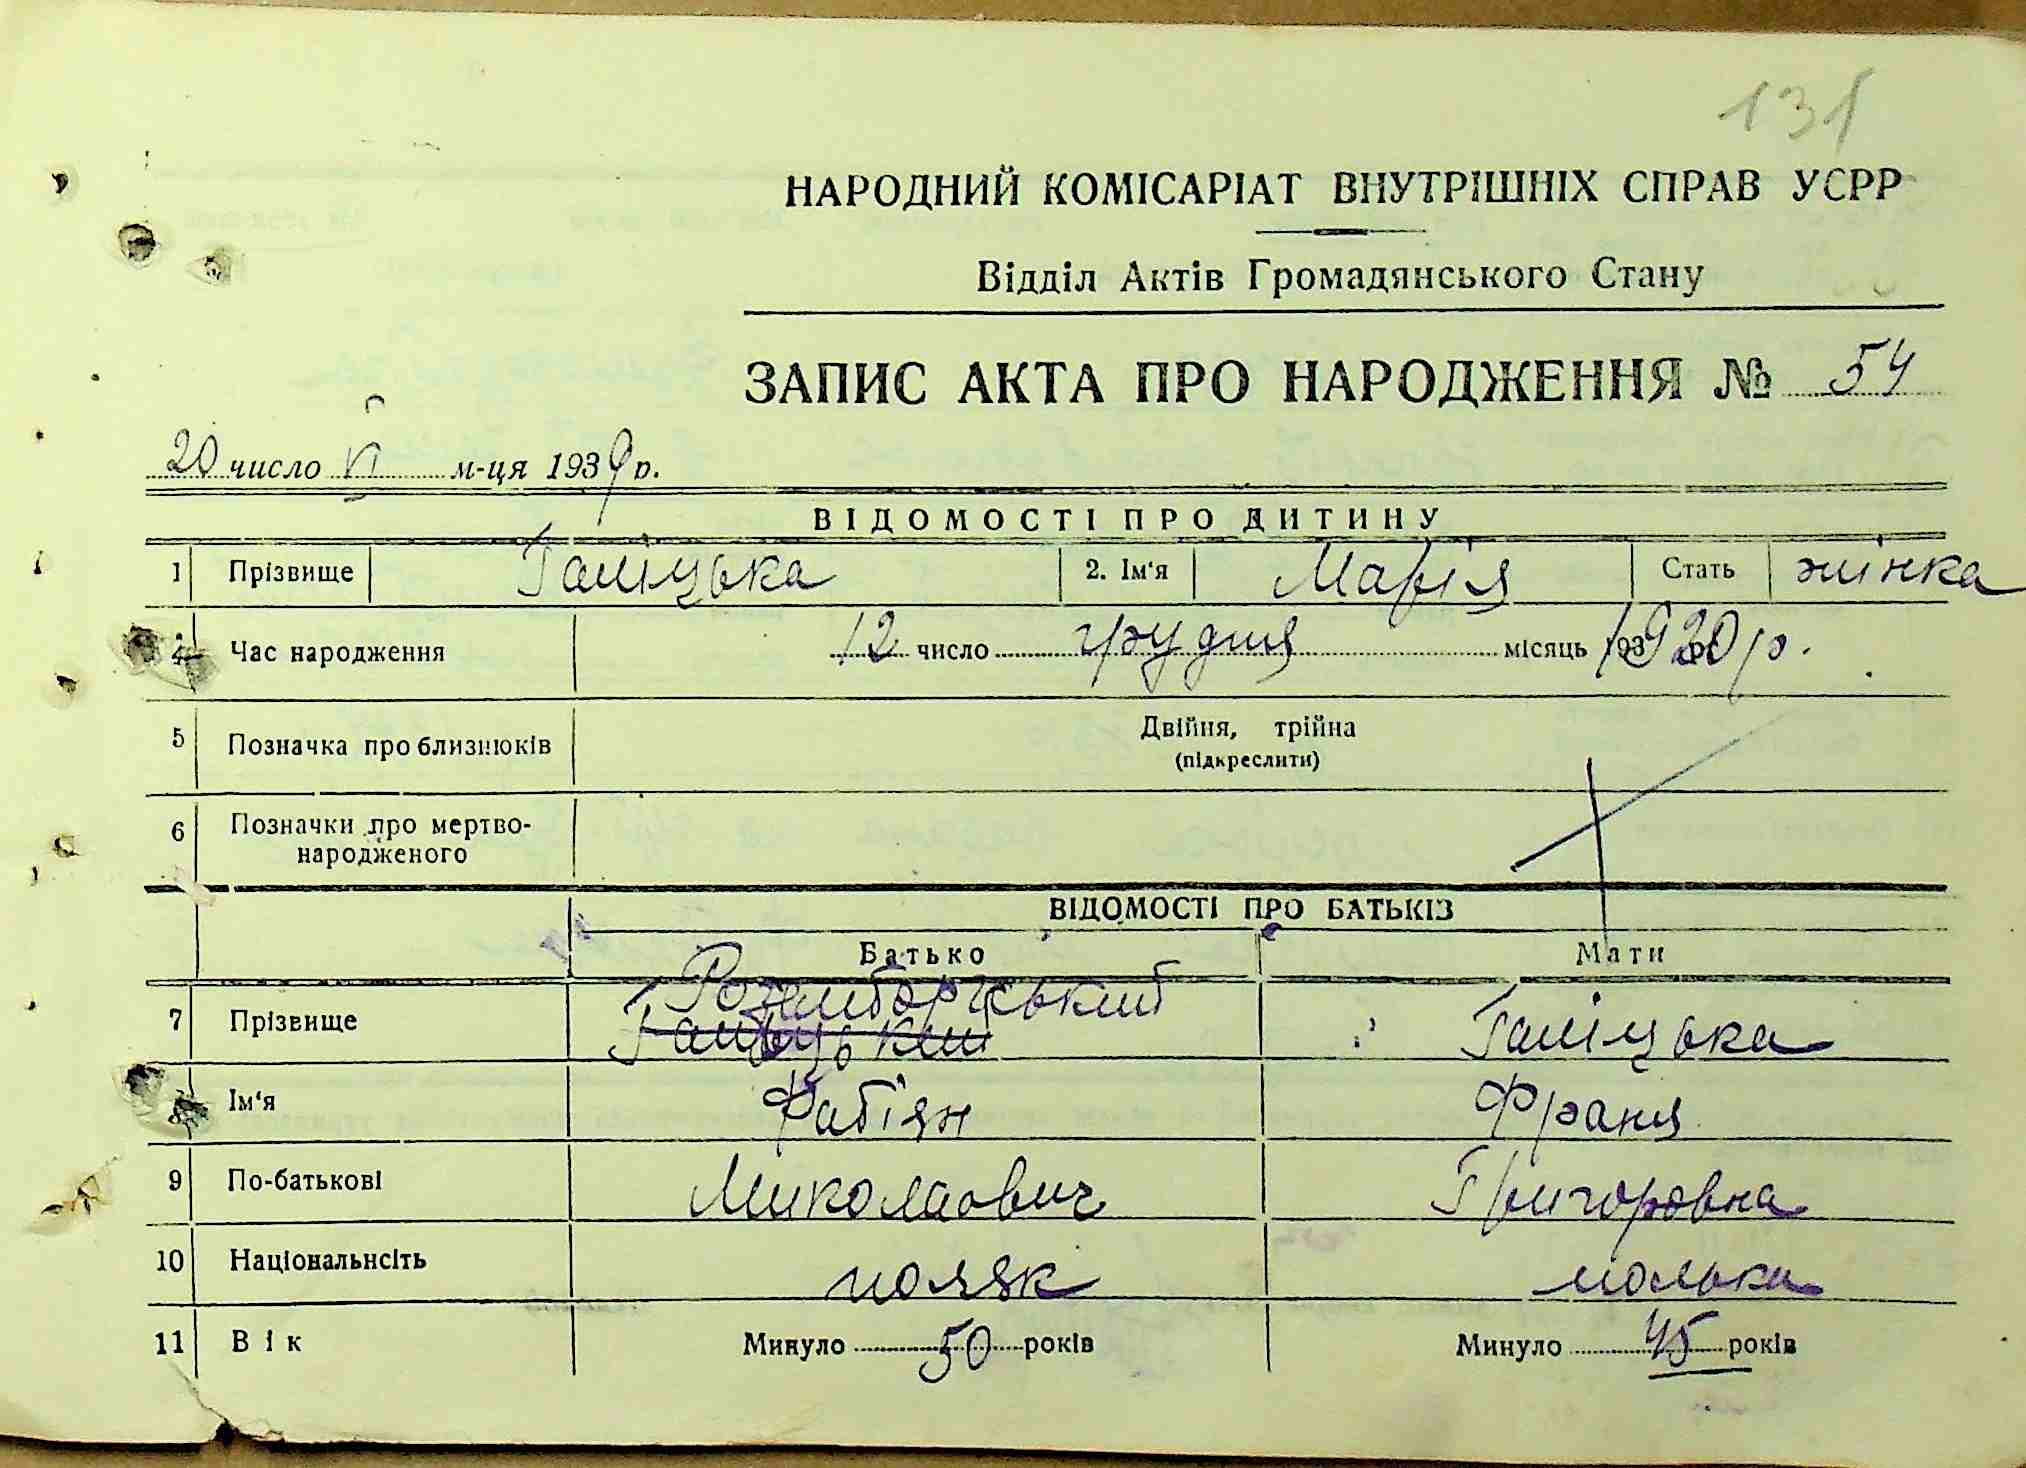 131
НАРОДНИЙ КОМІСАРІАТ ВНУТРІШНІХ СПРАВ УСРР
Відділ Актів Громадянського Стану
ЗАПИС АКТА ПРО НАРОДЖЕННЯ № 54
20 число VI м-ця 1939 р.
ВІДОМОСТІ ПРО ДИТИНУ
1 Прізвище Галіцька 2. Ім'я Марія Стать жінка
Час народження 12 число грудня місяць 1930 р.
5 Позначка про близнюків Двійня, трійна
(підкреслити)
6 Позначки про мертво-
народженого
ВІДОМОСТІ ПРО БАТЬКІВ
Батько Мати
7 Прізвище Галіцька
Ім'я Фабіян Франя
9 По-батькові Миколаович Григоровна
10 Національнсіть поляк полька
11 Вік Минуло 50 років Минуло 45 років